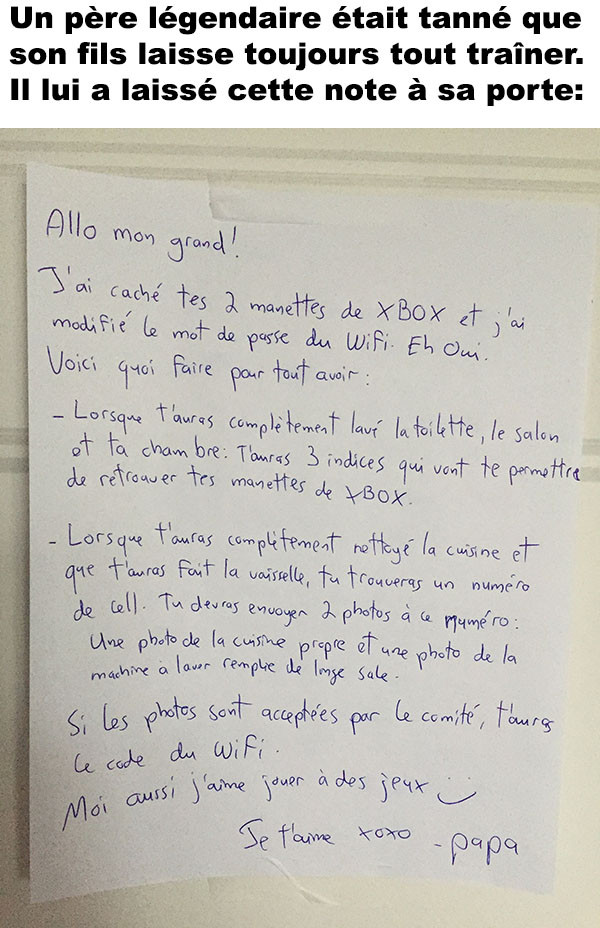 Un père légendaire était tanné que
son fils laisse toujours tout traîner.
Il lui a laissé cette note à sa porte:
Allo mon grand!
J'ai caché tes 2 manettes de XBOX et j'ai
modifié le mot de passe du WiFi. Eh Oui.
Voici quoi faire pour tout avoir:
- Lorsque t'auras complètement lavé la toilette, le salon
et ta chambre: T'auras 3 indices qui vont te permettre
de retrouver tes manettes de XBOX.
- Lorsque t'auras complètement nettoyé la cuisine et
que t'auras fait la vaisselle, tu trouveras un numéro
de cell. Tu devras envoyer 2 photos à ce numéro:
Une photo de la cuisine propre et une photo de la
machine à laver remplie de linge sale.
Si les photos sont acceptées par le comité, t'auras
le code du WiFi.
Moi aussi j'aime jouer à des jeux :)
Je t'aime xoxo - papa